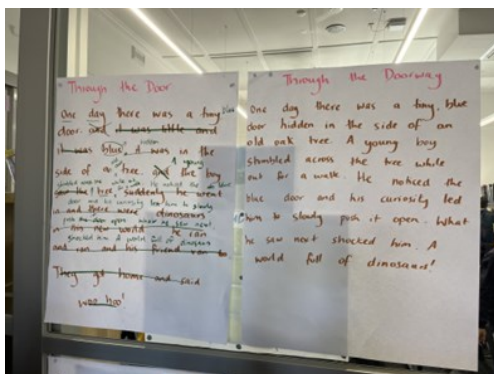 Through the Door
One day there was a tiny blue
door. and it was little and
it was blue, hidden it was in the
side of a tree. A young and the boy
saw the tree Suddenly he went
in and there were dinosaurs
in his new world he ran
and ran and his friend ran to
They got home and said
woo hoo!
Through the Doorway
One day there was a tiny, blue
door hidden in the side of an
old oak tree. A young boy
stumbled across the tree while
out for a walk. He noticed the
blue door and his curiosity led
him to slowly push it open. What
he saw next shocked him. A
world full of dinosaurs!